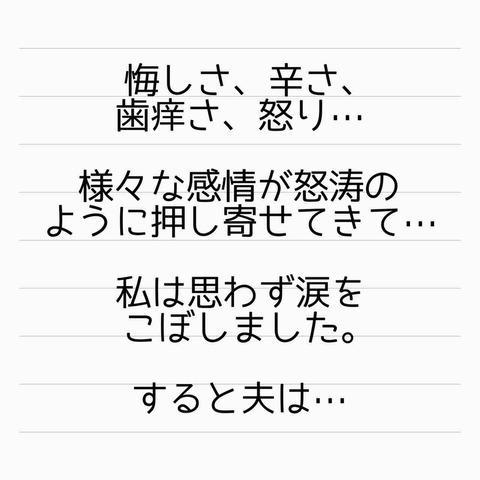 悔しさ、辛さ、
歯痒さ、怒り…
様々な感情が怒涛の
ように押し寄せてきて…
私は思わず涙を
こぼしました。
すると夫は…